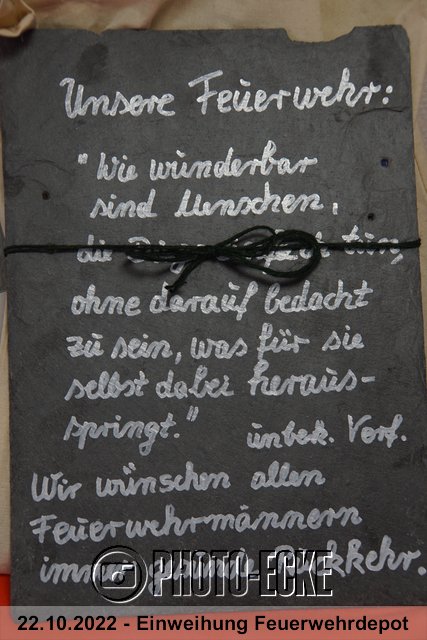 Unsere Feuerwehr:
"Wie wunderbar
sind Menschen,
die Dinge tun,
ohne darauf bedacht
zu sein, was für sie
selbst dabei heraus-
springt."
unbek. Verf.
Wir wünschen allen
Feuerwehrmännern
immer gesunde Rückkehr.
PHOTO-ECKE
22.10.2022 - Einweihung Feuerwehrdepot